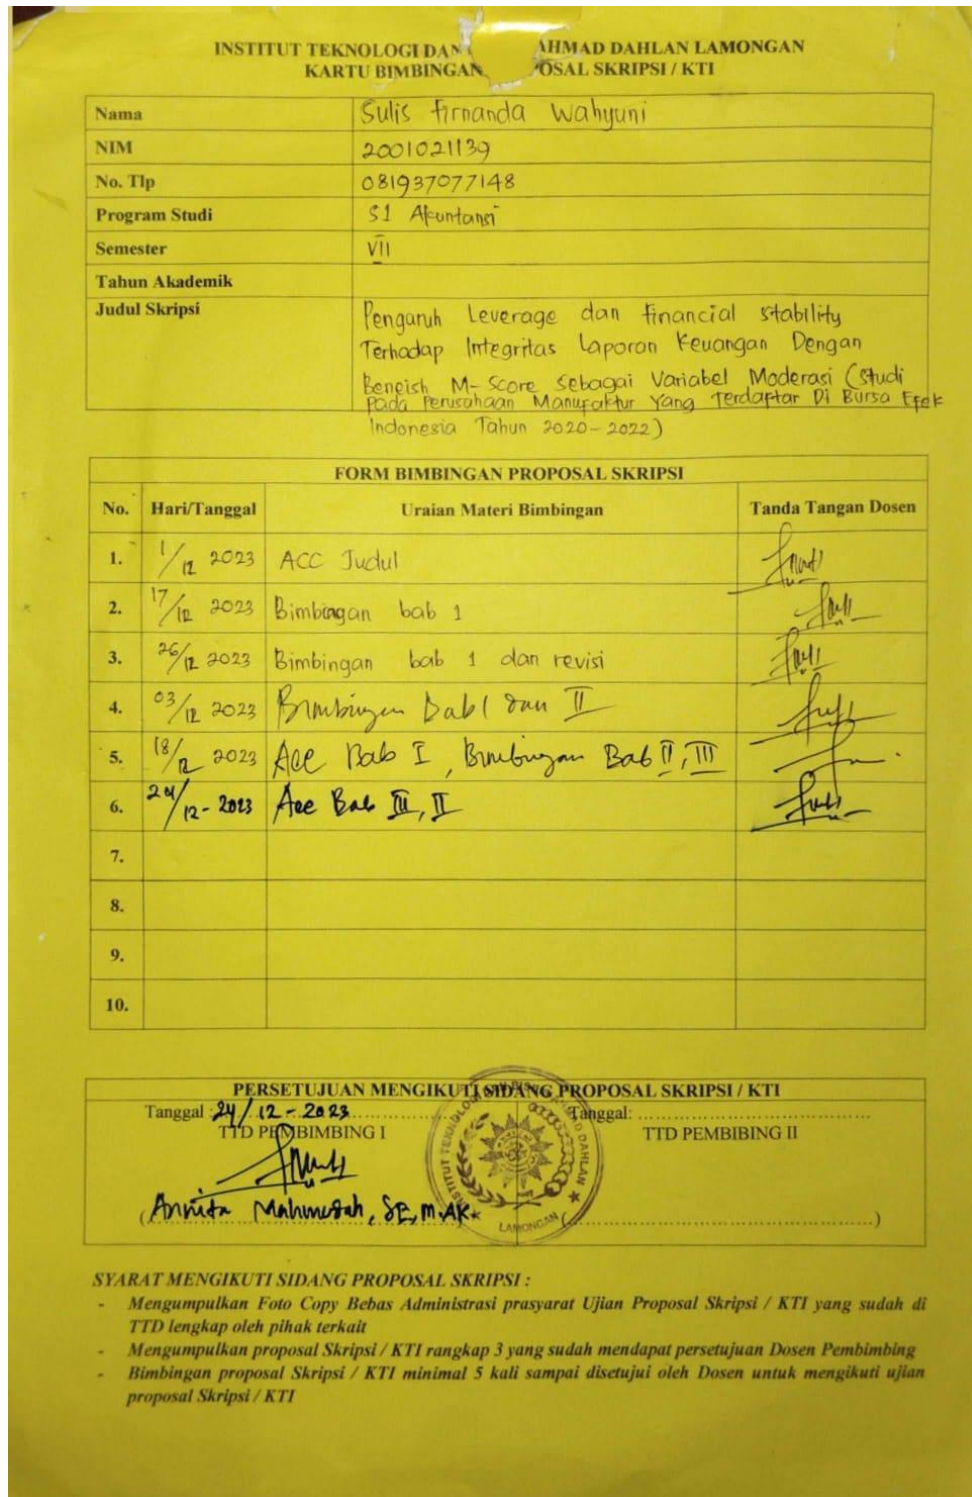 INSTITUT TEKNOLOGI DAN AHMAD DAHLAN LAMONGAN
KARTU BIMBINGAN OSAL SKRIPSI / KTI
Nama Sulis Firnanda Wahyuni
NIM 2001021139
No. Tlp 081937077148
Program Studi S1 Akuntansi
Semester VII
Tahun Akademik
Judul Skripsi Pengaruh Leverage dan Financial Stability
Terhadap Integritas Laporan Keuangan Dengan
Beneish M-Score Sebagai Variabel Moderasi (Studi
Pada Perusahaan Manufaktur Yang Terdaftar Di Bursa Efek
Indonesia Tahun 2020-2022)
FORM BIMBINGAN PROPOSAL SKRIPSI
No. Hari/Tanggal Uraian Materi Bimbingan Tanda Tangan Dosen
1. 1/12 2023 ACC Judul
2. 17/12 2023 Bimbingan bab 1
3. 26/12 2023 Bimbingan bab 1 dan revisi
4. 03/12 2023 Bimbingan Bab I dan II
5. 18/12 2023 Acc Bab I, Bimbingan Bab II, III
6. 24/12-2023 Acc Bab III, II
7.
8.
9.
10.
PERSETUJUAN MENGIKUTI SIDANG PROPOSAL SKRIPSI / KTI
Tanggal: 24/12-2023 Tanggal:
TTD PEMBIMBING I TTD PEMBIBING II
INSTITUT TEKNOLOGI DAN BISNIS AHMAD DAHLAN
LAMONGAN
(Annita Mahmudah, SE, M.AK. ( )
SYARAT MENGIKUTI SIDANG PROPOSAL SKRIPSI :
- Mengumpulkan Foto Copy Bebas Administrasi prasyarat Ujian Proposal Skripsi / KTI yang sudah di
TTD lengkap oleh pihak terkait
- Mengumpulkan proposal Skripsi / KTI rangkap 3 yang sudah mendapat persetujuan Dosen Pembimbing
- Bimbingan proposal Skripsi / KTI minimal 5 kali sampai disetujui oleh Dosen untuk mengikuti ujian
proposal Skripsi / KTI